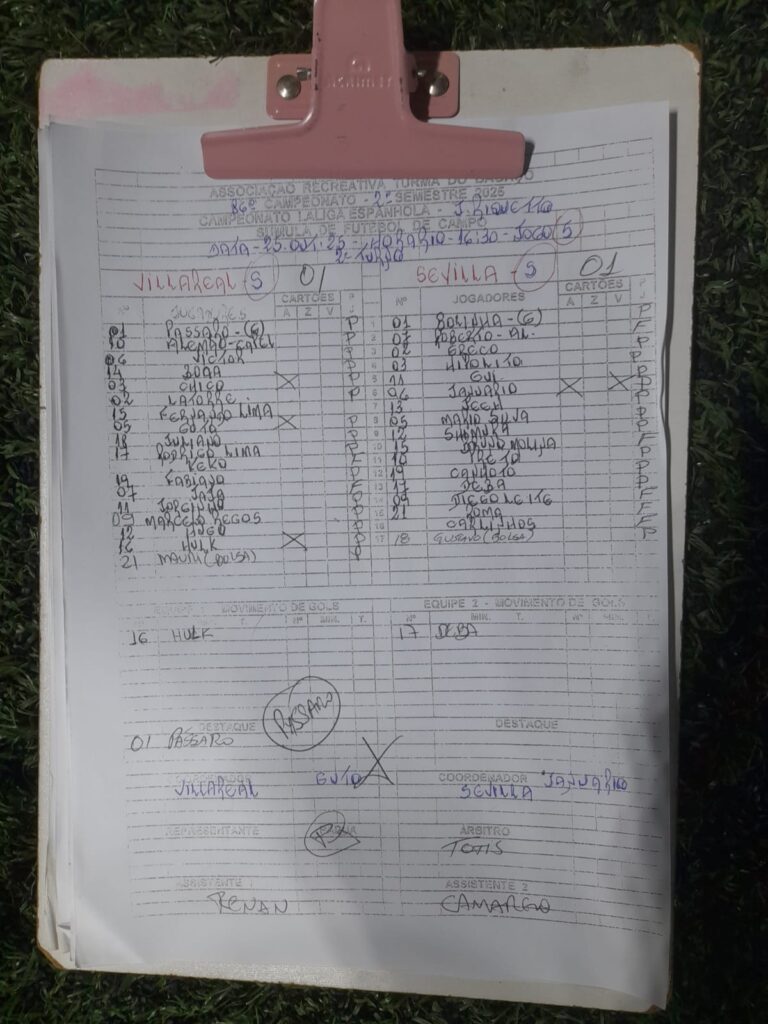 ASSOCIAÇÃO RECREATIVA TURMA DO BAGAÇO
86º CAMPEONATO - 2º SEMESTRE 2025
CAMPEONATO LALIGA ESPANHOLA - J. RIQUETTO
SÚMULA DE FUTEBOL DE CAMPO
DATA - 25. OUT. 25 - HORÁRIO - 16:30 - JOGO 5
2º TURNO
VILLAREAL - S 01 SEVILLA - S 01
CARTÕES CARTÕES
Nº JOGADORES A Z V Nº JOGADORES A Z V
01 PASSARO - (G) P 1 01 BOLINHA - (G) P
10 ALEMÃO P 2 ROBERTO - AL. F
06 VICTOR P 3 02 GRECO P
14 BOAA P 4 03 HIPOLITO P
03 CHICO X P 5 11 GUI P
02 LATORRE P 6 06 JANUARIO X X P
15 FERNANDO LIMA 7 13
05 GUTO X P 8 05 MARIO SILVA P
18 JULIANO P 9 12
17 RODRIGO LIMA P 10 15 BRUNO MOLINA
KEKO F 11 10 PRETO P
19 FABIANO P 12 19 CANHOTO P
07 JAJA F 13 17 DEBA P
11 JORGINHO P 14 09 DIEGO LEITE
09 MARCELO REGOS P 15 21 ROMA
12 HUGO P 16 CARLINHOS
16 HULK X P 17 18 GUSTAVO (BOLSA) P
21 MAURI (BOLSA) P
EQUIPE 1 - MOVIMENTO DE GOLS EQUIPE 2 - MOVIMENTO DE GOLS
Nº MIN. T. Nº MIN. T. Nº MIN. T.
16 HULK 17 DEBA
PÁSSARO
DESTAQUE DESTAQUE
01 PÁSSARO
COORDENADOR COORDENADOR
VILLAREAL GUTO SEVILLA JANUARIO
REPRESENTANTE ÁRBITRO
TOTIS
ASSISTENTE 1 ASSISTENTE 2
RENAN CAMARGO